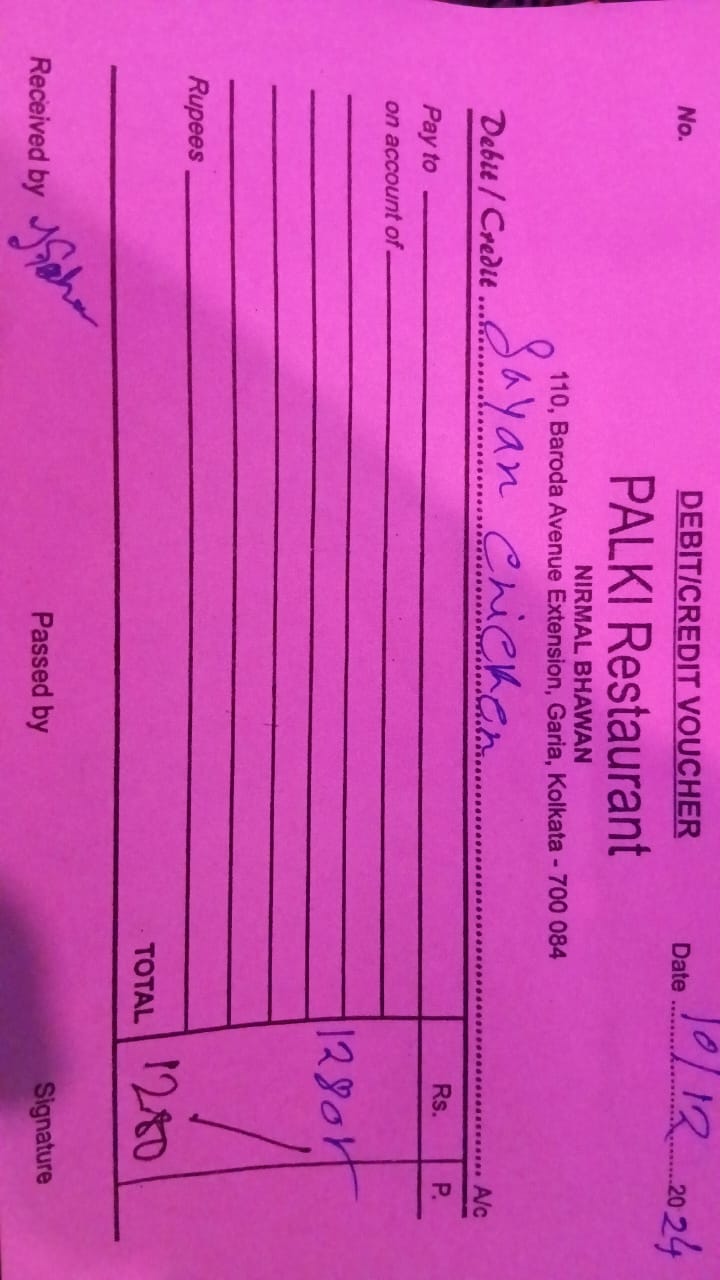 DEBIT/CREDIT VOUCHER
No. Date 10/12 2024
PALKI Restaurant
NIRMAL BHAWAN
110, Baroda Avenue Extension, Garia, Kolkata - 700 084
Debit / Credit Sayan Chicken A/c
Pay to Rs. P.
on account of
1280
Rupees
TOTAL 1280
Received by Passed by Signature